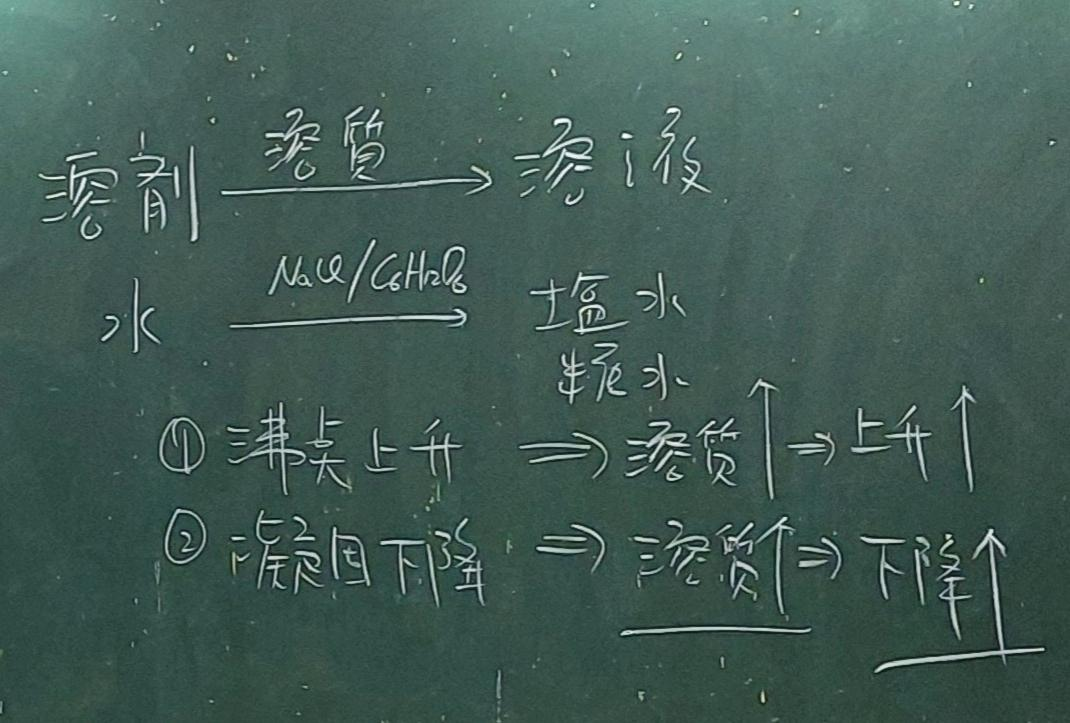 溶剤 溶質→ 溶液
水 NaCl/C6H12O6→ 塩水
糖水
① 沸点上昇 ⇒ 溶質↑ ⇒ 上昇↑
② 凝固下降 ⇒ 溶質↑ ⇒ 下降↑